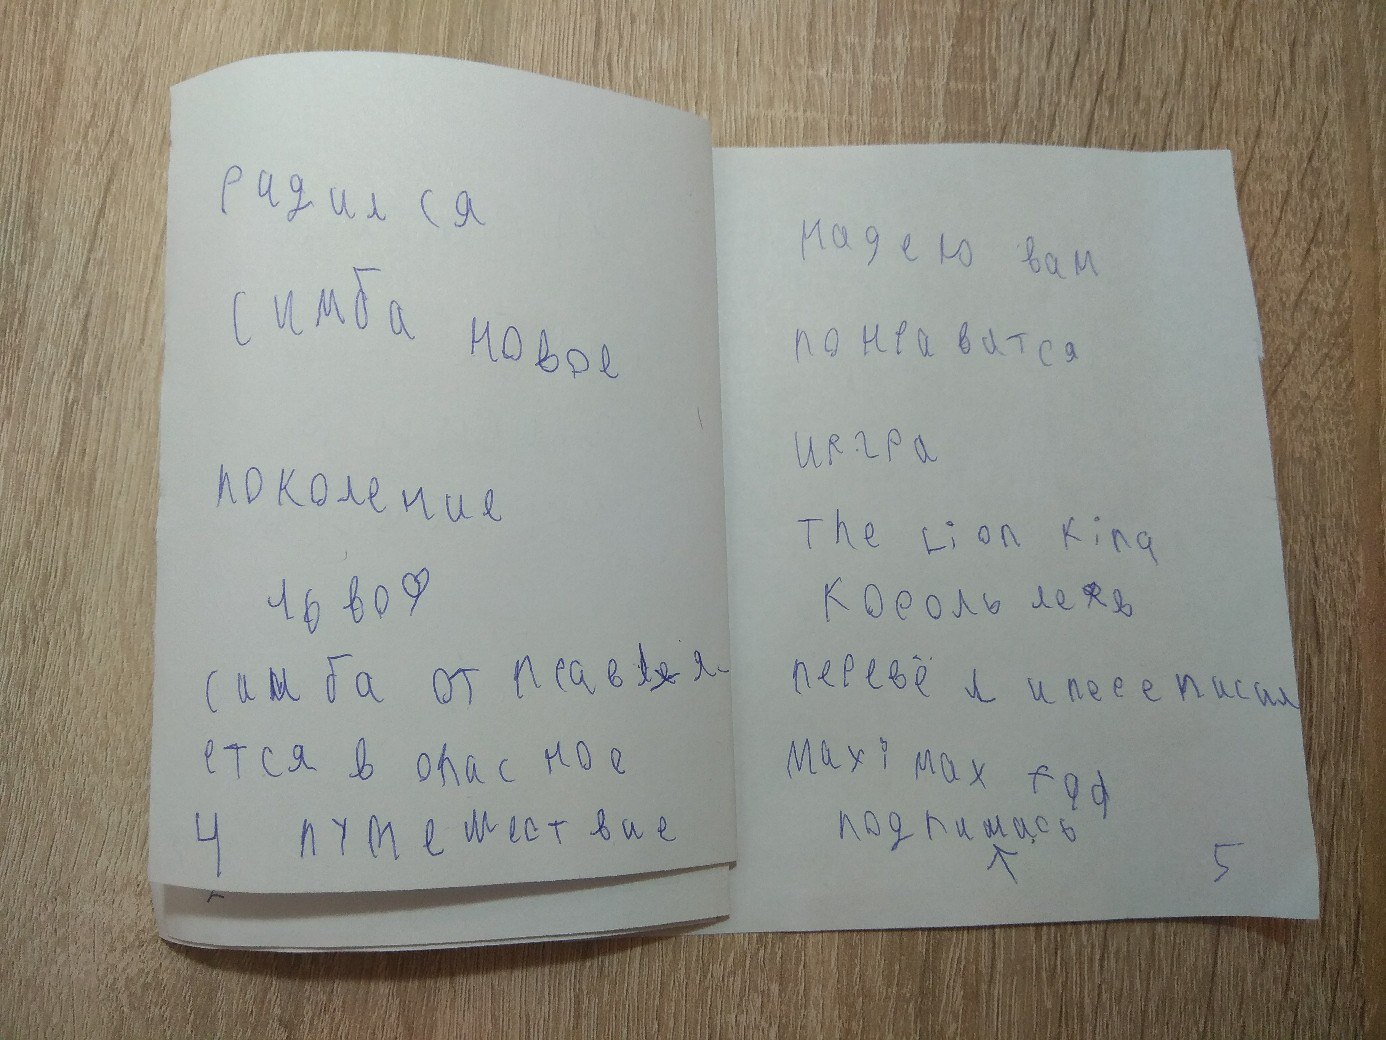 радился
симба новое
поколение
львов
симба отправля-
ется в опасное
путешествие
4
надею вам
понравится
игра
The Lion King
король лев
перевёл и переписал
Maximax
подпишись
5